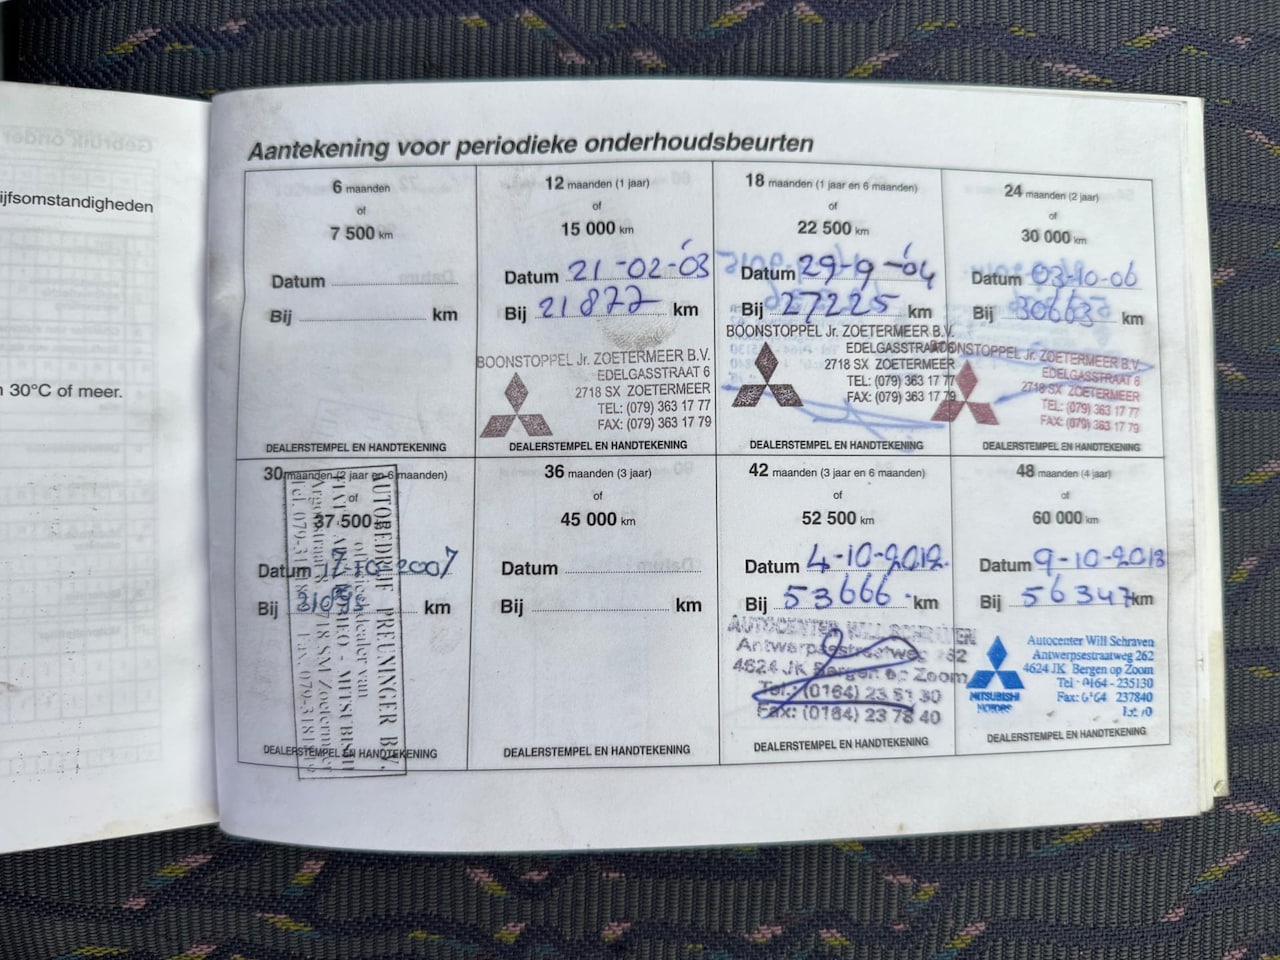 ijfsomstandigheden
n 30°C of meer.
Aantekening voor periodieke onderhoudsbeurten
6 maanden
of
7 500 km
Datum
Bij km
DEALERSTEMPEL EN HANDTEKENING
12 maanden (1 jaar)
of
15 000 km
Datum 21-02-03
Bij 21877 km
BOONSTOPPEL Jr. ZOETERMEER B.V.
EDELGASSTRAAT 6
2718 SX ZOETERMEER
TEL: (079) 363 17 77
FAX: (079) 363 17 79
DEALERSTEMPEL EN HANDTEKENING
18 maanden (1 jaar en 6 maanden)
of
22 500 km
Datum 29-9-04
Bij 27225 km
BOONSTOPPEL Jr. ZOETERMEER B.V.
EDELGASSTRAAT 6
2718 SX ZOETERMEER
TEL: (079) 363 17 77
FAX: (079) 363 17 79
DEALERSTEMPEL EN HANDTEKENING
24 maanden (2 jaar)
of
30 000 km
Datum 03-10-06
Bij km
BOONSTOPPEL Jr. ZOETERMEER B.V.
EDELGASSTRAAT 6
2718 SX ZOETERMEER
TEL: (079) 363 17 77
FAX: (079) 363 17 79
DEALERSTEMPEL EN HANDTEKENING
30 maanden (2 jaar en 6 maanden)
of
37 500
Datum 2007
Bij km
AUTOBEDRIJF PREUNINGER B.V.
DEALERSTEMPEL EN HANDTEKENING
36 maanden (3 jaar)
of
45 000 km
Datum
Bij km
DEALERSTEMPEL EN HANDTEKENING
42 maanden (3 jaar en 6 maanden)
of
52 500 km
Datum 4-10-2012
Bij 53666 km
AUTOCENTER WILL SCHRAVEN
Antwerpsestraatweg 262
4624 JK Bergen op Zoom
Tel.: (0164) 23 51 30
Fax: (0164) 23 78 40
DEALERSTEMPEL EN HANDTEKENING
48 maanden (4 jaar)
of
60 000 km
Datum 9-10-2013
Bij 56347 km
MITSUBISHI
MOTORS
Autocenter Will Schraven
Antwerpsestraatweg 262
4624 JK Bergen op Zoom
Tel 0164-235130
Fax: 0164 237840
DEALERSTEMPEL EN HANDTEKENING